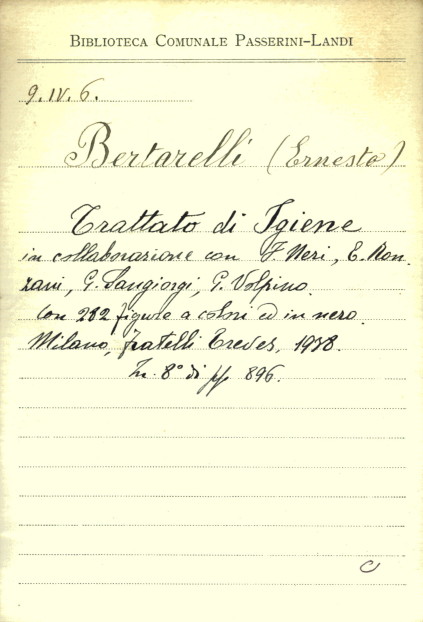 BIBLIOTECA COMUNALE PASSERINI-LANDI
9.IV.6.
Bertarelli (Ernesto)
Trattato di Igiene
in collaborazione con F. Neri, E. Ron
zani, G. Sangiorgi, G. Volpino.
Con 282 figure a colori ed in nero.
Milano, fratelli Treves, 1918.
In 8° di pp 896.
C